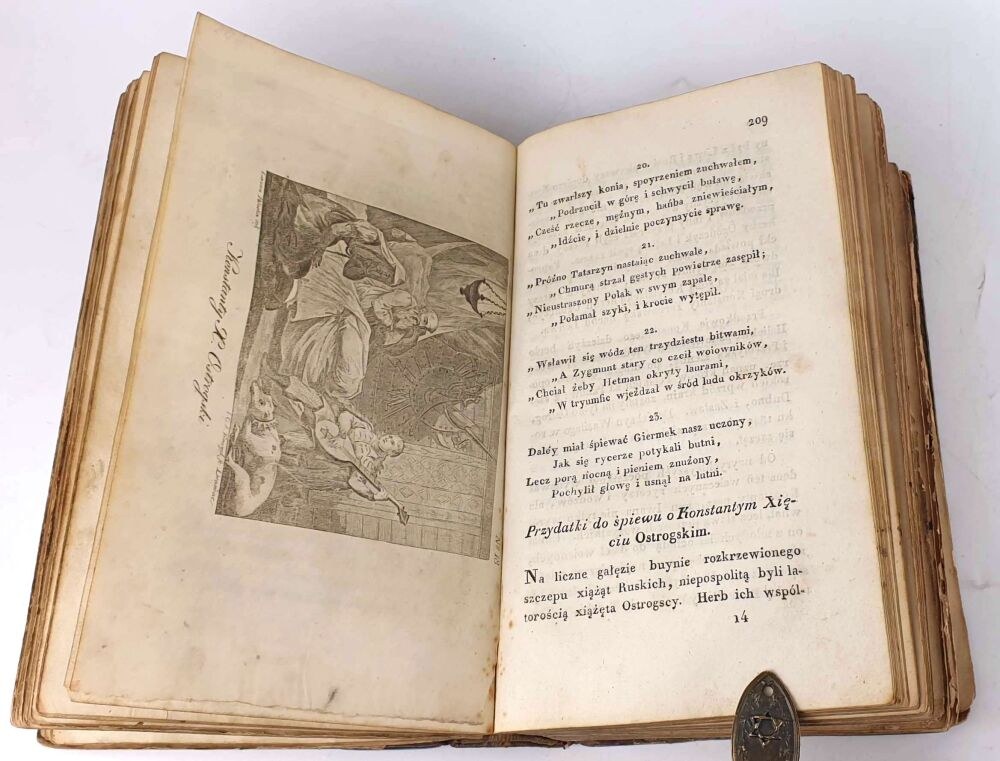 Konstanty X. Ostrogski
N° 13
209
20.
„Tu zwarłszy konia, spoyrzeniem zuchwałem,
„Podrzucił w górę i schwycił buławę,
„Cześć rzecze, mężnym, hańba zniewieściałym,
„Idźcie, i dzielnie poczynaycie sprawę.
21.
„Próżno Tatarzyn nastaiąc zuchwale,
„Chmurą strzał gęstych powietrze zasępił;
„Nieustraszony Polak w swym zapale,
„Połamał szyki, i krocie wytępił.
22.
„Wsławił się wódz ten trzydziestu bitwami,
„A Zygmunt stary co czcił woiowników,
„Chciał żeby Hetman okryty laurami,
„W tryumfie wjeżdzał w śród ludu okrzyków.
23.
Daléy miał śpiewać Giermek nasz uczony,
Jak się rycerze potykali butni,
Lecz porą nocną i pieniem znużony,
Pochylił głowę i usnął na lutni.
Przydatki do śpiewu o Konstantym Xię-
ciu Ostrogskim.
Na liczne gałęzie buynie rozkrzewionego
szczepu xiążąt Ruskich, niepospolitą byli la-
torością xiążęta Ostrogscy. Herb ich wspól-
14